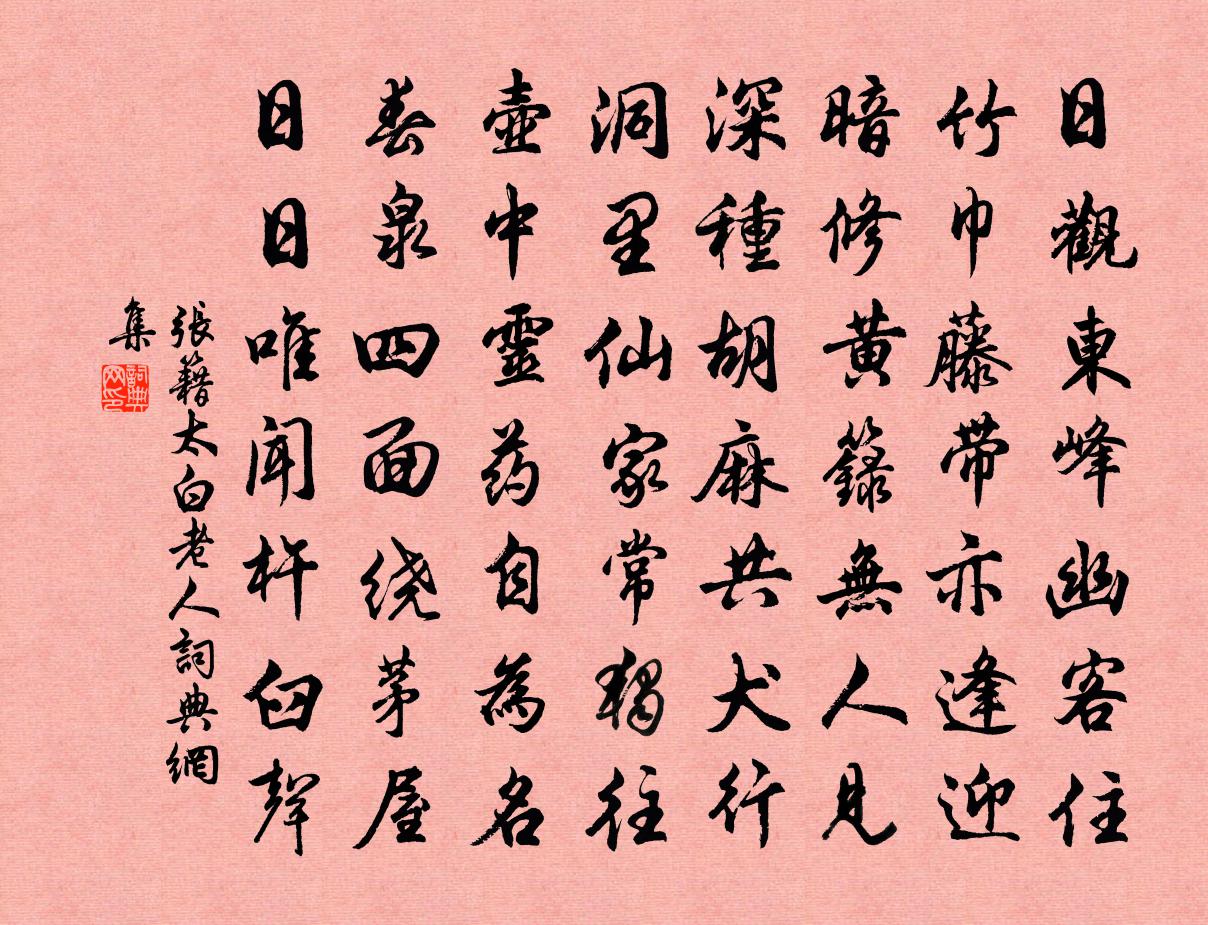 日觀東峰幽客住
竹巾藤带亦逢迎
暗修黃籙無人見
深種胡麻共犬行
洞里仙家常獨往
壺中靈药自為名
春泉四面绕茅屋
日日唯聞杵臼聲
張籍太白老人詞典網
集
詞典网印